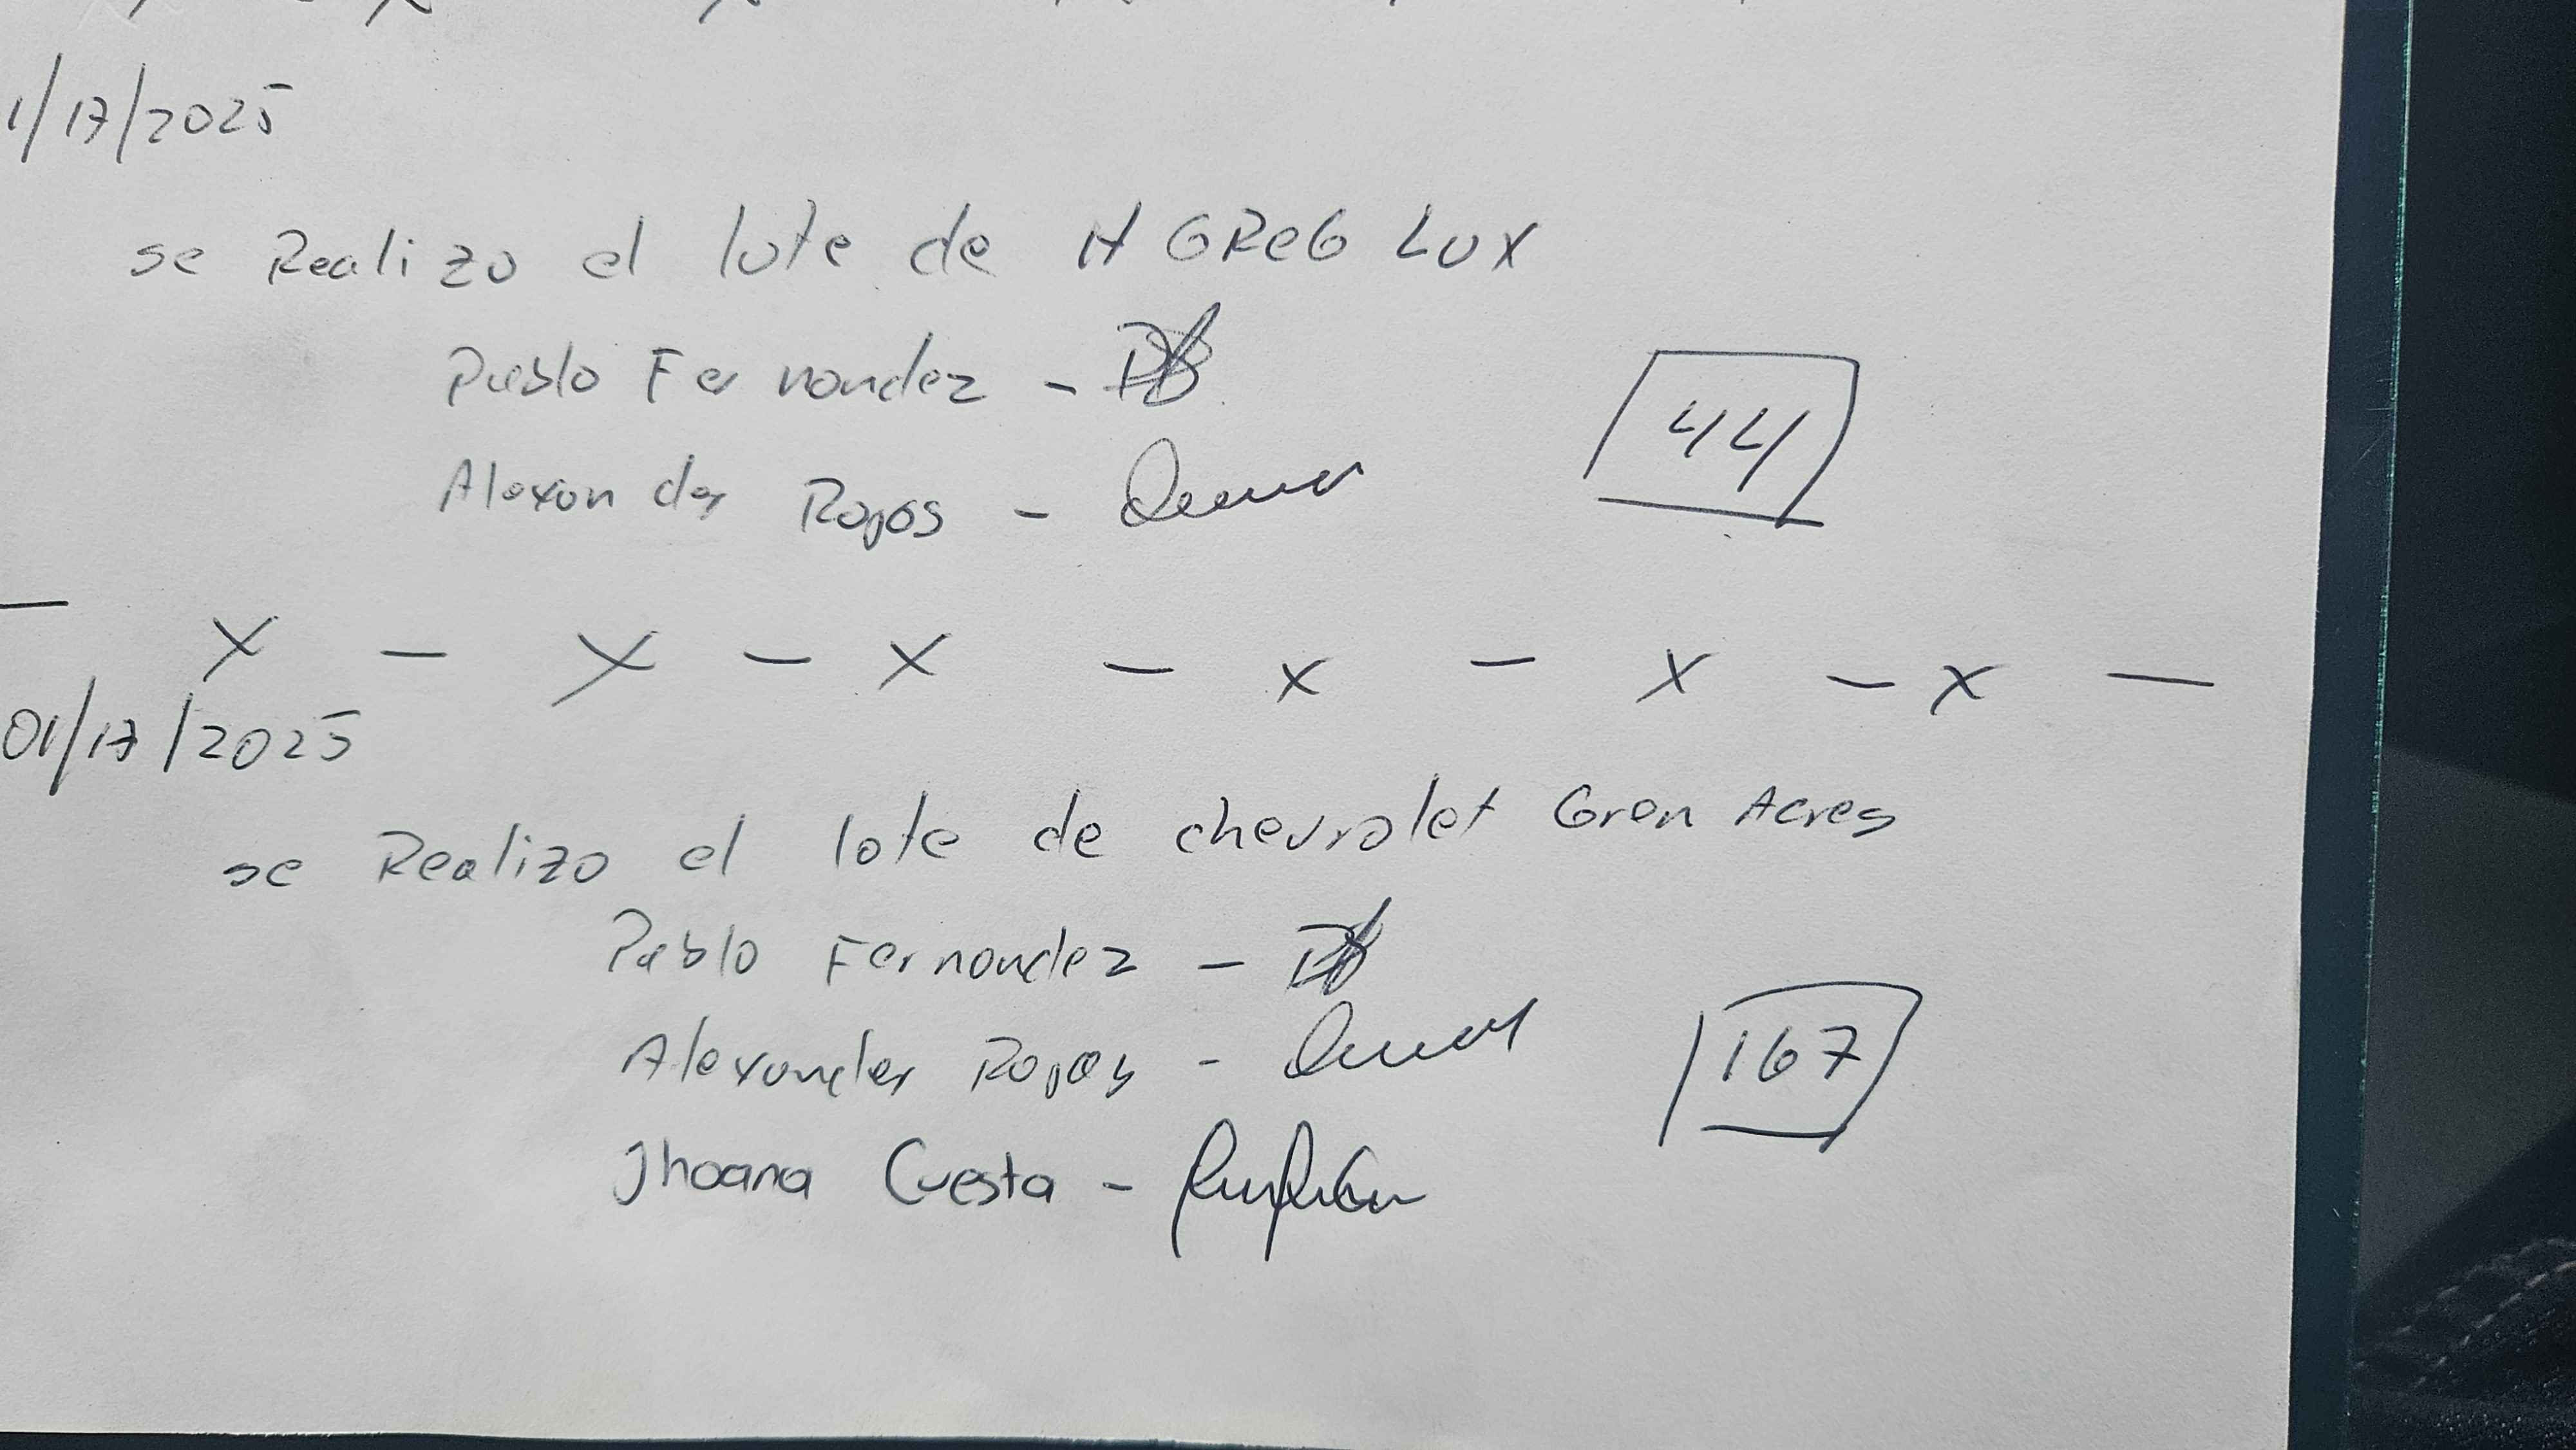 1/17/2025
se Realizo el lote de H GReG LUX
Pablo Fernandez -
44
Alexander Rojas -
— X — X — X — X — X — X —
01/17/2025
se Realizo el lote de chevrolet Gren Acres
Pablo Fernandez -
Alexander Rojas -
167
Jhoana Cuesta -